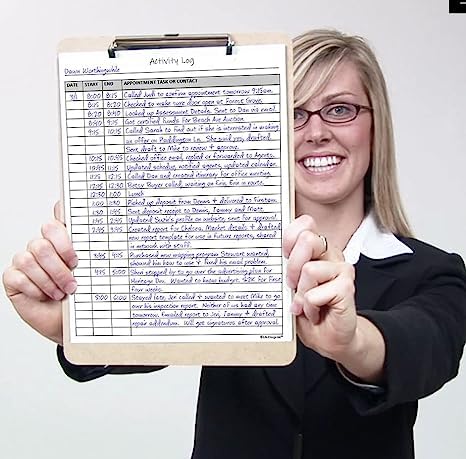 Activity Log
Dawn Worthingwhile
DATE START END APPOINTMENT TASK OR CONTACT
9/1 8:00 8:15 Called Judi to confirm appointment tomorrow 9:15am.
8:15 8:20 Checked to make sure door open at Forest Grove.
8:20 8:40 Looked up Assessment Details. Sent to Dan via email.
8:40 9:15 Get certified funds for Beach Ave Auction.
9:15 10:15 Called Sarah to find out if she is interested in making
an offer on Paddington Ln. She said yes, drafted.
Sent draft to Mike to review + approve.
10:15 10:45 Checked office email, replied or forwarded to Agents.
10:45 11:15 Updated schedule, notified agents, updated calendar.
11:15 12:15 Called Dan and created itinerary for office meeting.
12:15 12:30 Betsy Buyer called, waiting on fire. Eric in route.
12:30 1:00 Lunch
1:00 1:30 Picked up deposit from Dennis + delivered to Firstam.
1:30 1:45 Sent deposit receipt to Dennis, Tammy and Mate.
1:45 2:45 Updated Susie's profile on website, sent for approval.
2:45 3:45 Created report for Chelsea. Market details + drafted
new report template for use in future reports, shared
in network with staff.
3:45 4:45 Purchased new mapping program Stewart wanted,
showed him how to use + fund his email problem.
4:45 5:00 Shed stopped by to go over the advertising plan for
Heritage Den. Wanted to know budget. $2K for First
four weeks.
5:00 6:00 Stayed late, Jeri called + wanted to meet Mike to go
over his inspection report. Neither of us had any time
tomorrow. Emailed report to Jeri, Tammy + drafted
repair addendum. Will get signatures after approval.